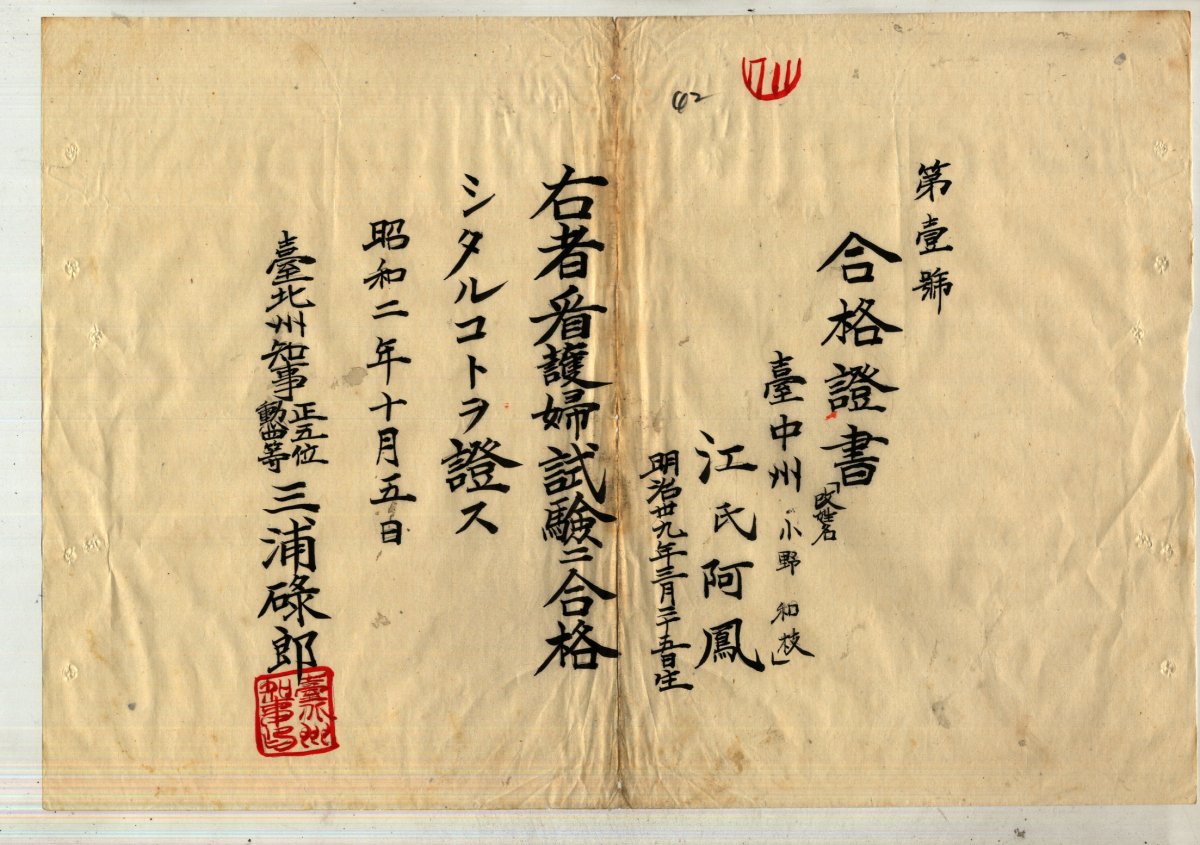 第壹號
合格證書
「改姓名
小野和枝」
臺中州
江氏阿鳳
明治卅九年三月二十五日生
右者看護婦試驗ニ合格
シタルコトヲ證ス
昭和二年十月五日
臺北州知事正五位勳四等三浦碌郎
42